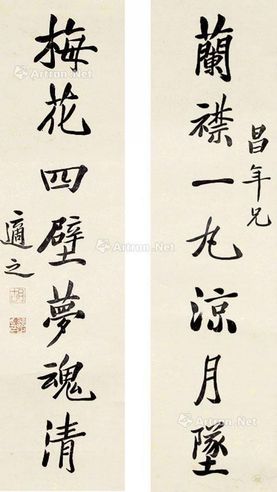 蘭襟一丸涼月墜
昌年兄
梅花四壁夢魂清
適之
Artron.Net
Artron.Net
Artron.Net
Artron.Net